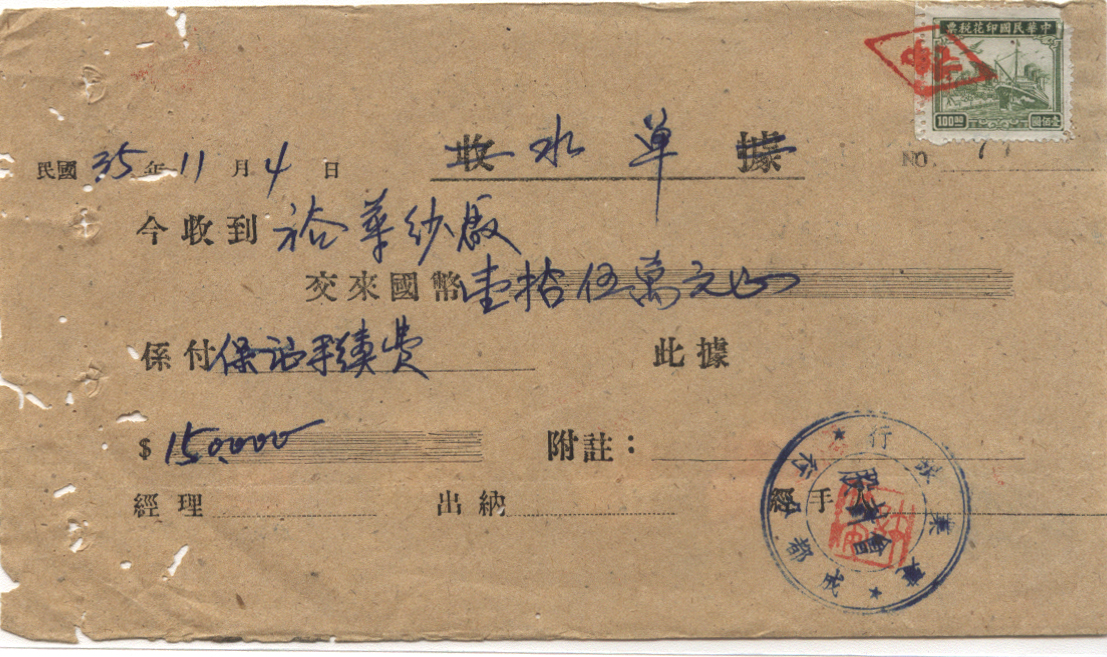 中華民國印花稅票
100圓
壹佰圓
民國 35 年 11 月 4 日
收 水 單 據
NO.
今收到 裕華紗廠
交來國幣 壹拾伍萬元正
係付 保証手續費
此據
$ 150,000
附註：
經理
出納
經手人